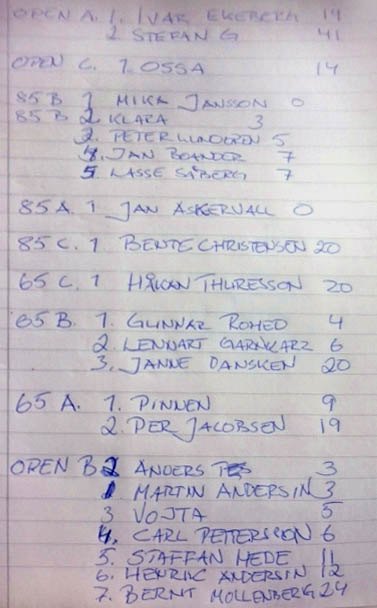 OPEN A. 1. IVAR EKEBERG 19
2 STEFAN G 41
OPEN C. 1. OSSA 14
85 B 1 MIKA JANSSON 0
85 B 2 KLARA 3
3. PETER LUNDGREN 5
4. JAN BOANDER 7
5 LASSE SÅBERG 7
85 A. 1 JAN ASKERVALL 0
85 C. 1 BENTE CHRISTENSEN 20
65 C. 1 HÅKAN THURESSON 20
65 B. 1. GUNNAR ROMEO 4
2. LENNART GARNKARZ 6
3. JANNE DANSKEN 20
65 A. 1. PINNEN 9
2. PER JACOBSEN 19
OPEN B 2 ANDERS 3
1 MARTIN ANDERSIN 3
3 VOJTA 5
4. CARL PETTERSSON 6
5. STAFFAN HEDE 11
6. HENRIC ANDERSIN 12
7. BERNT MOLLENBERG 24